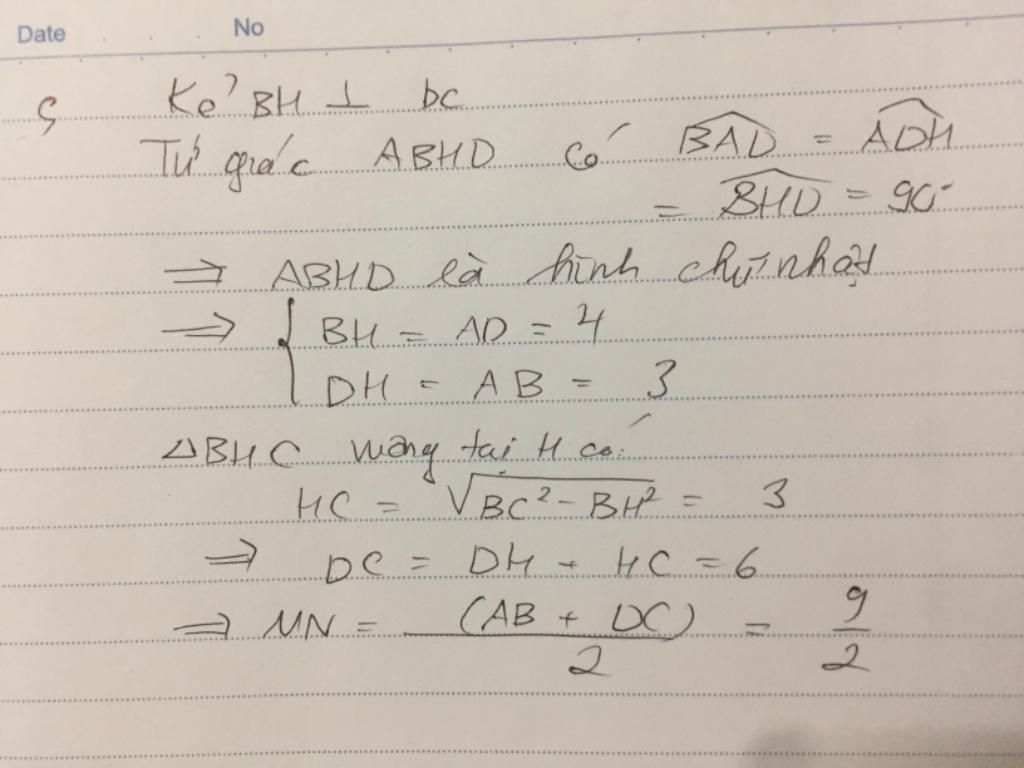 Date No
5 Kẻ BH ⊥ DC
Tứ giác ABHD có \widehat{BAD} = \widehat{ADH}
= \widehat{BHD} = 90°
⇒ ABHD là hình chữ nhật
⇒ { BH = AD = 4
DH = AB = 3
△BHC vuông tại H có:
HC = √(BC² - BH²) = 3
⇒ DC = DH + HC = 6
⇒ MN = (AB + DC) / 2 = 9/2